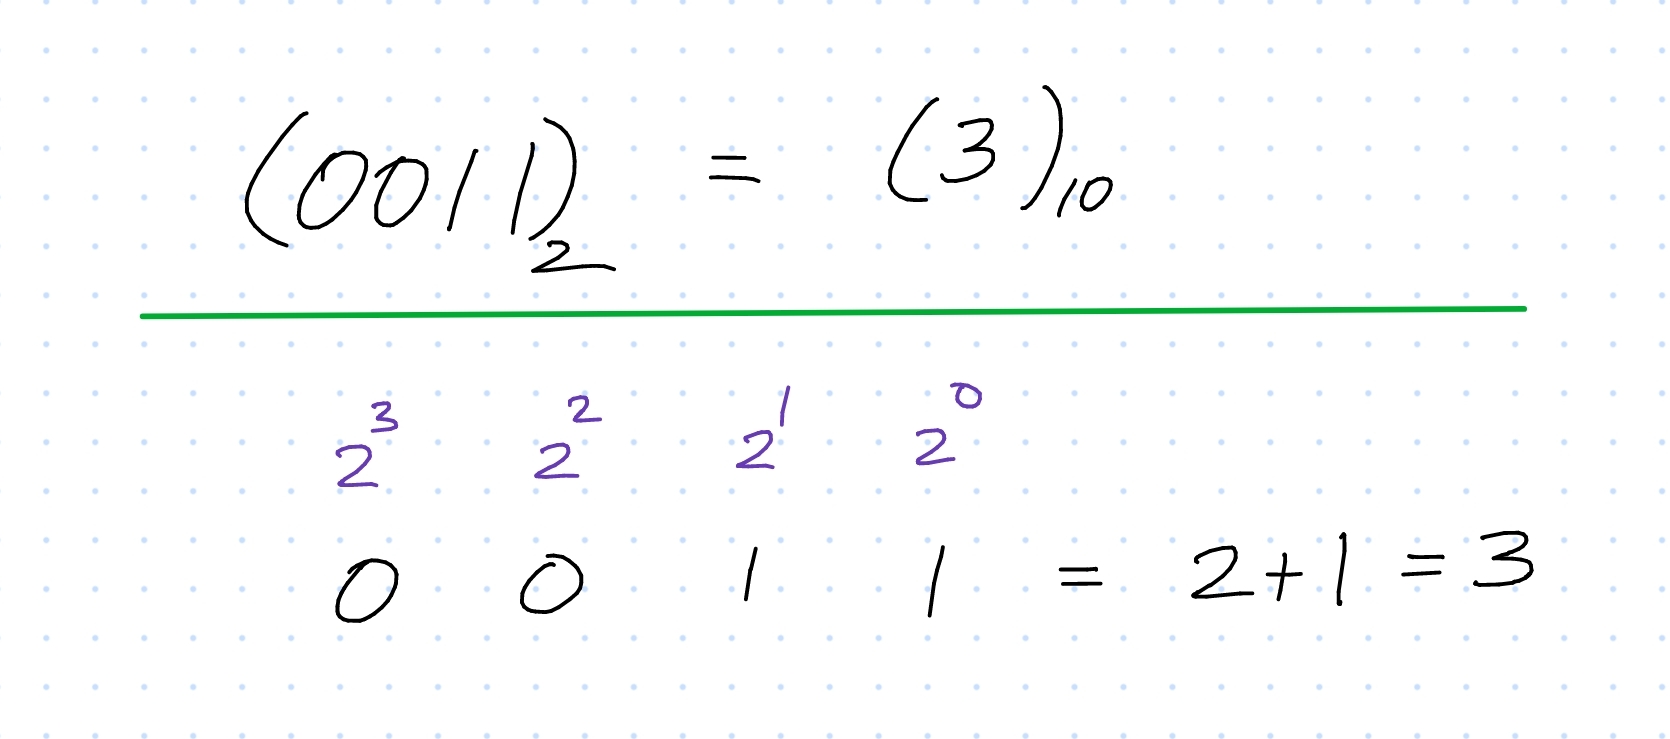 (0011)₂ = (3)₁₀
2³ 2² 2¹ 2⁰
0 0 1 1 = 2+1 = 3